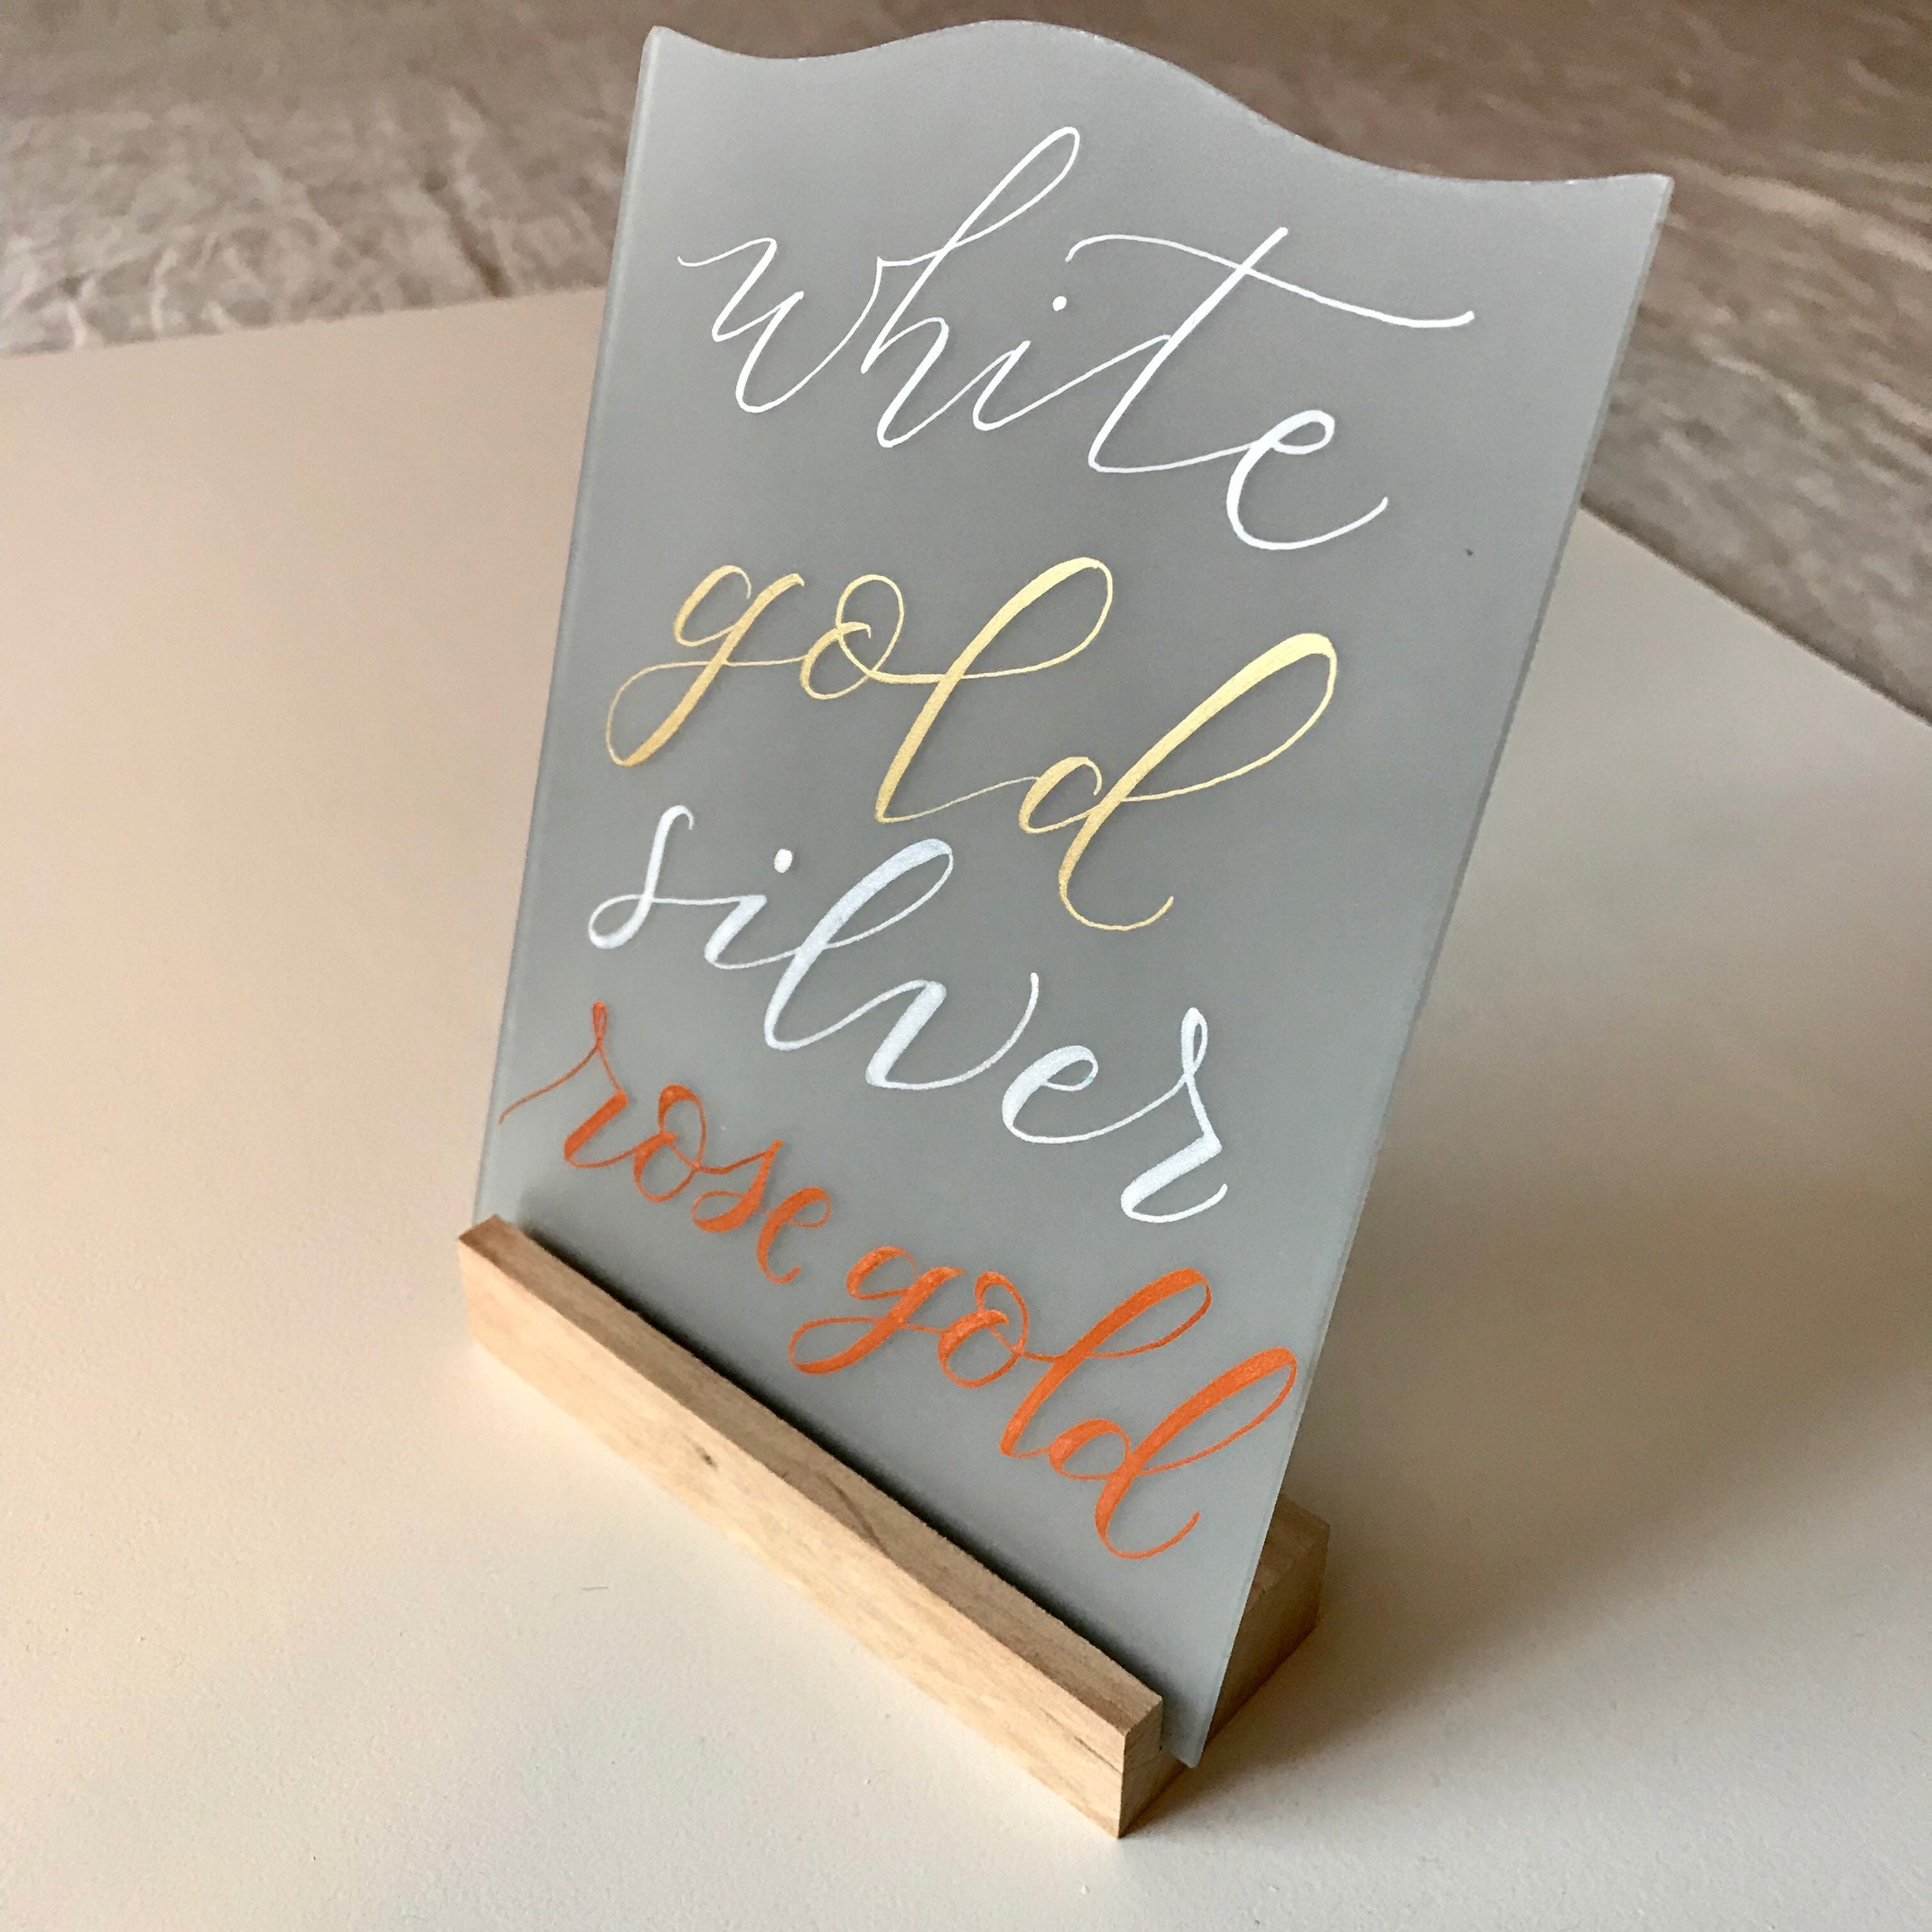 white
gold
silver
rose gold